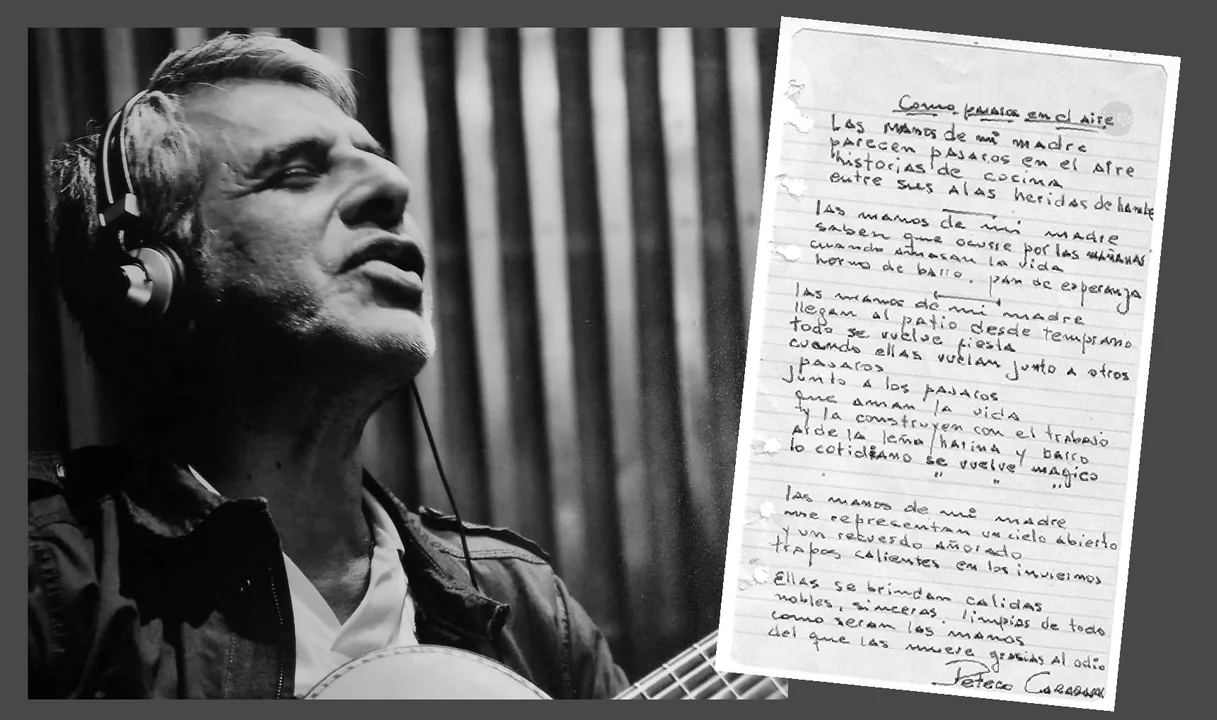 Como pajaros en el aire
Las manos de mi madre
parecen pajaros en el aire
historias de cocina
entre sus alas heridas de hambre
las manos de mi madre
saben que ocurre por las mañanas
cuando amasan la vida
horno de barro, pan de esperanza
las manos de mi madre
llegan al patio desde temprano
todo se vuelve fiesta
cuando ellas vuelan junto a otros
pajaros
junto a los pajaros
que aman la vida
y la construyen con el trabajo
arde la leña, harina y barro
lo cotidiano se vuelve magico
" " "
las manos de mi madre
me representan un cielo abierto
y un recuerdo añorado
trapos calientes en los inviernos
Ellas se brindan calidas
nobles, sinceras, limpias de todo
como seran las manos
del que las mueve gracias al odio
Peteco Carabajal